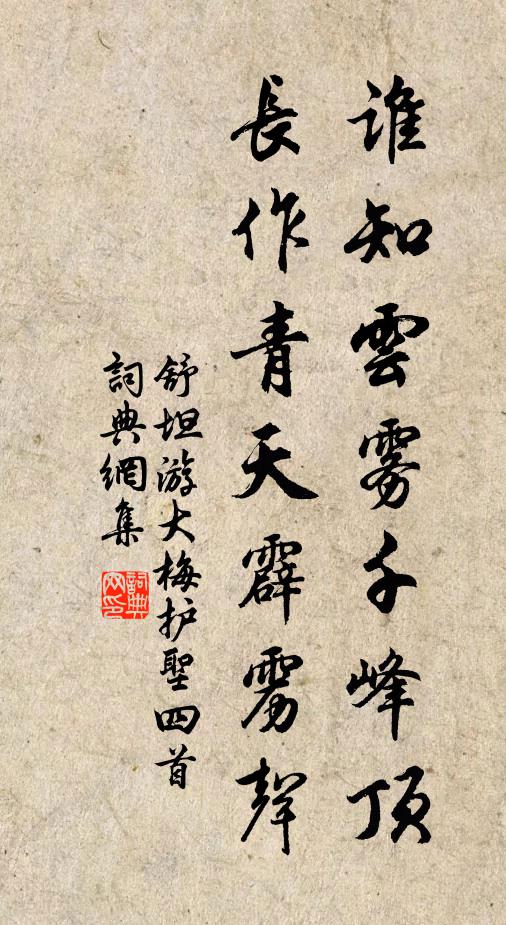 誰知雲霧千峰頂
長作青天霹雳聲
舒坦游大梅护聖四首
詞典網集
詞典
网印